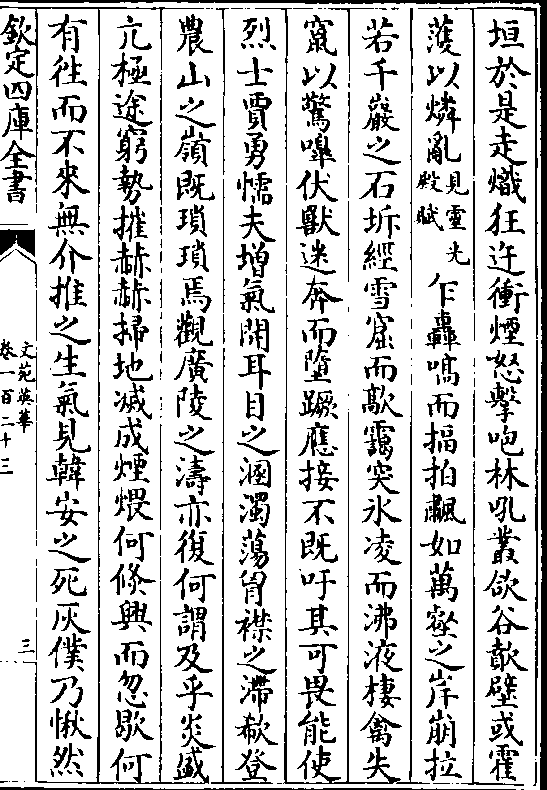 垣於是走熾狂迕衝煙怒擊咆林吼叢欲谷歕壁或霍
蒦以燐亂見靈光殿賦乍轟嗃而搹拍飍如萬壑之岸崩拉
若千巖之石坼經雪窟而歊靄突氷凌而沸液棲禽失
窠以驚嘷伏獸迷奔而墮蹶應接不既吁其可畏能使
烈士賈勇懦夫增氣開耳目之溷濁蕩胷襟之滯欷登
農山之嶺既瑣瑣焉觀廣陵之濤亦復何謂及乎炎盛
亢極途窮勢摧赫赫掃地滅成煙煨何倐興而忽歇何
有徃而不來無介推之生氣見韓安之死灰僕乃愀然
欽定四庫全書
文苑英華
卷一百二十三
三